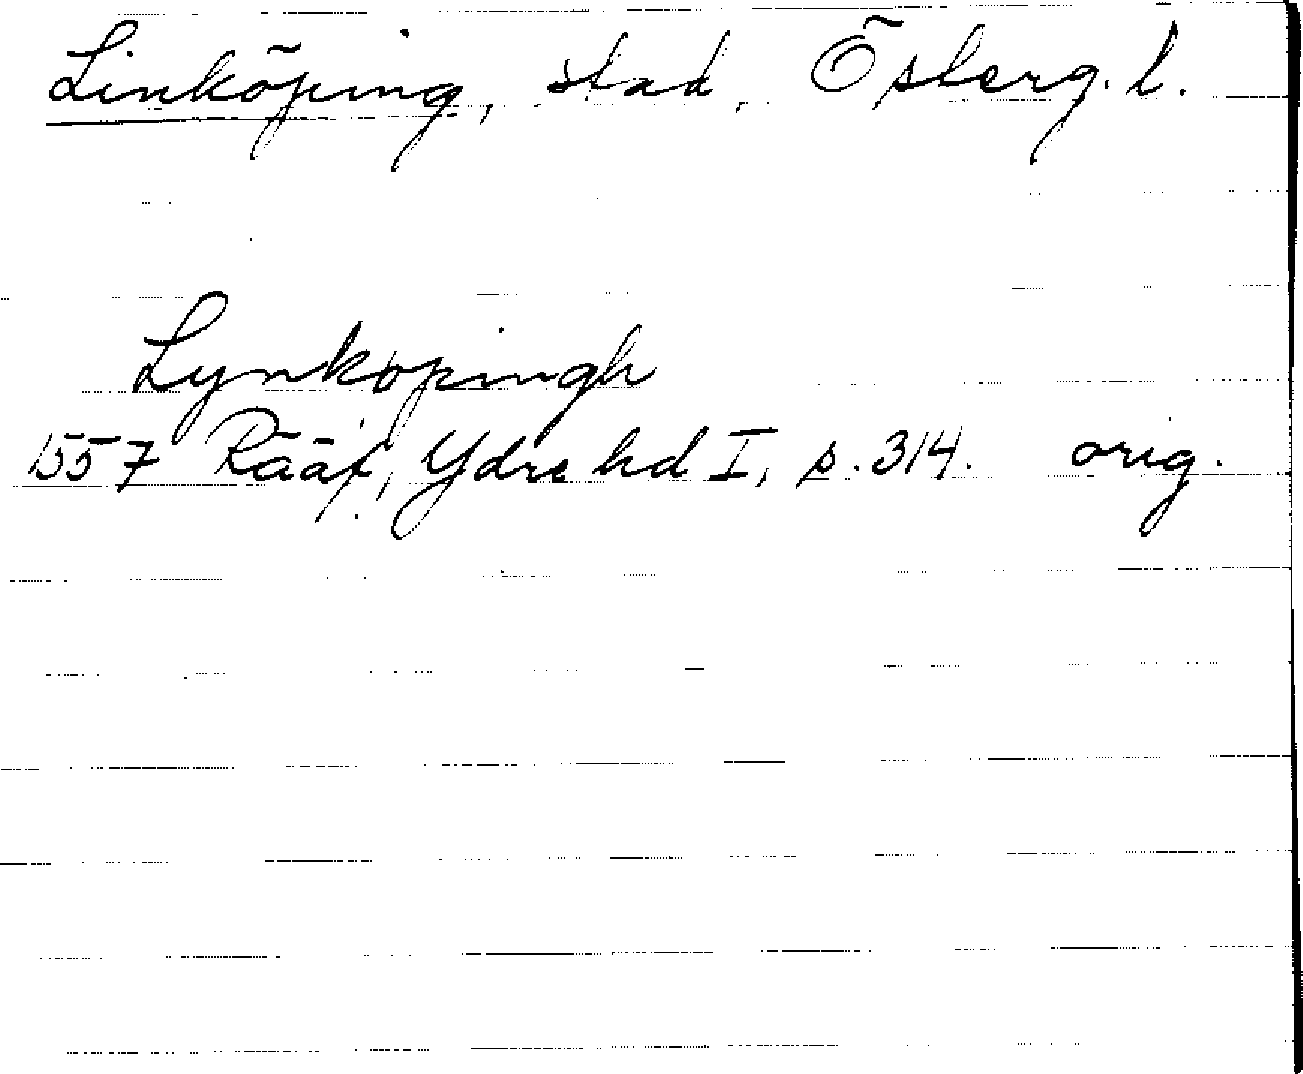 Linköping, stad, Österg. l.
Lynköpingh
1557 Rääf, Ydre hd I, s. 314. orig.